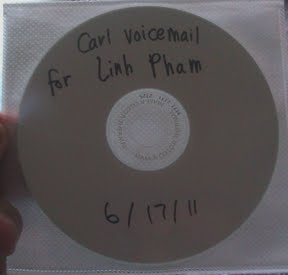 Carl Voicemail
for Linh Pham
6/17/11